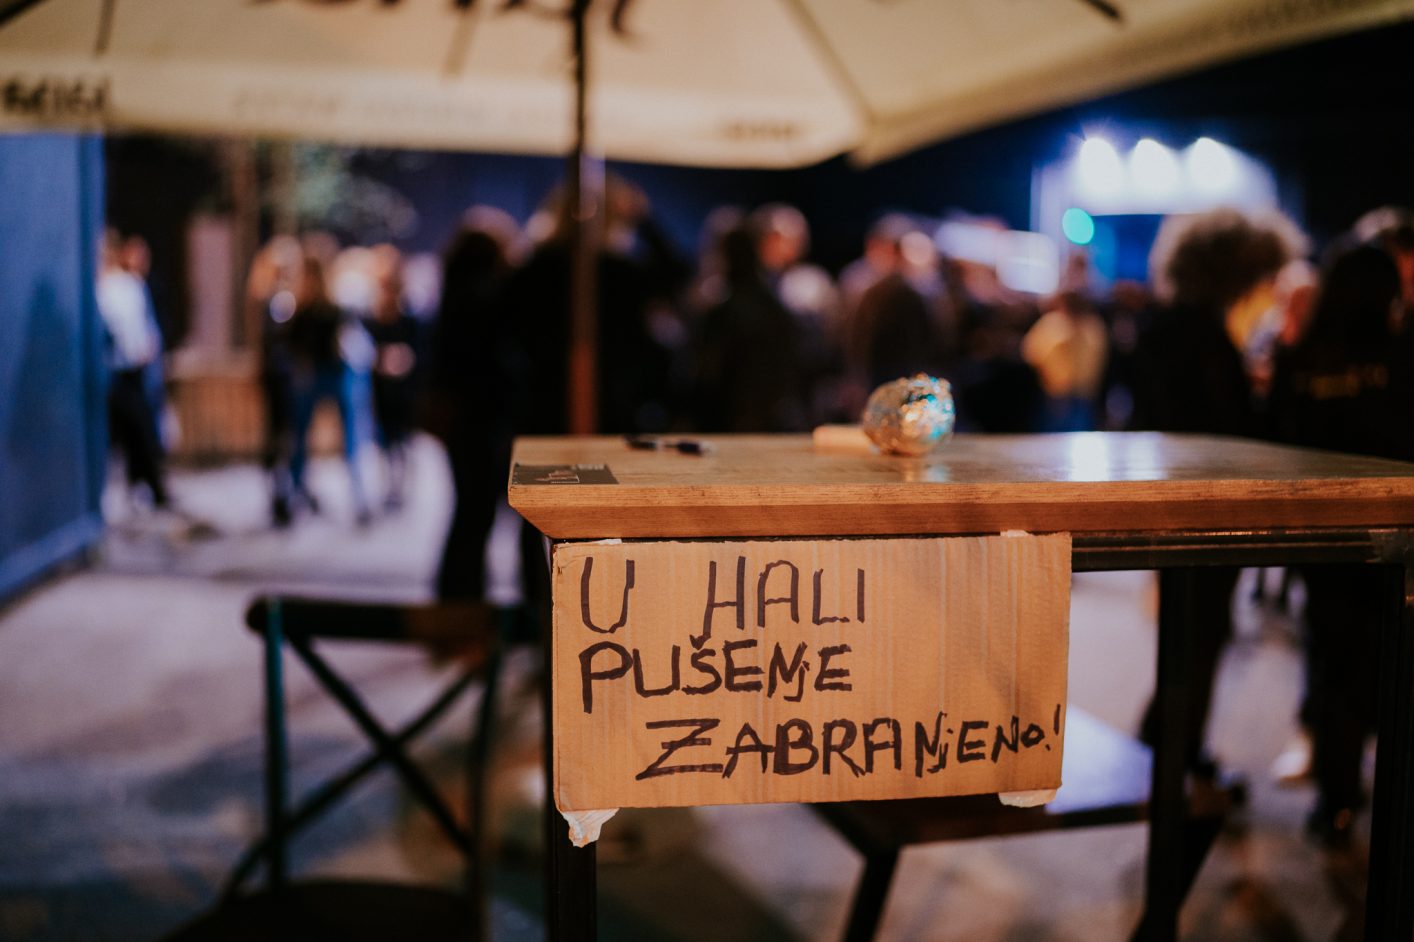 U HALI
PUŠENjE
ZABRANjENO!